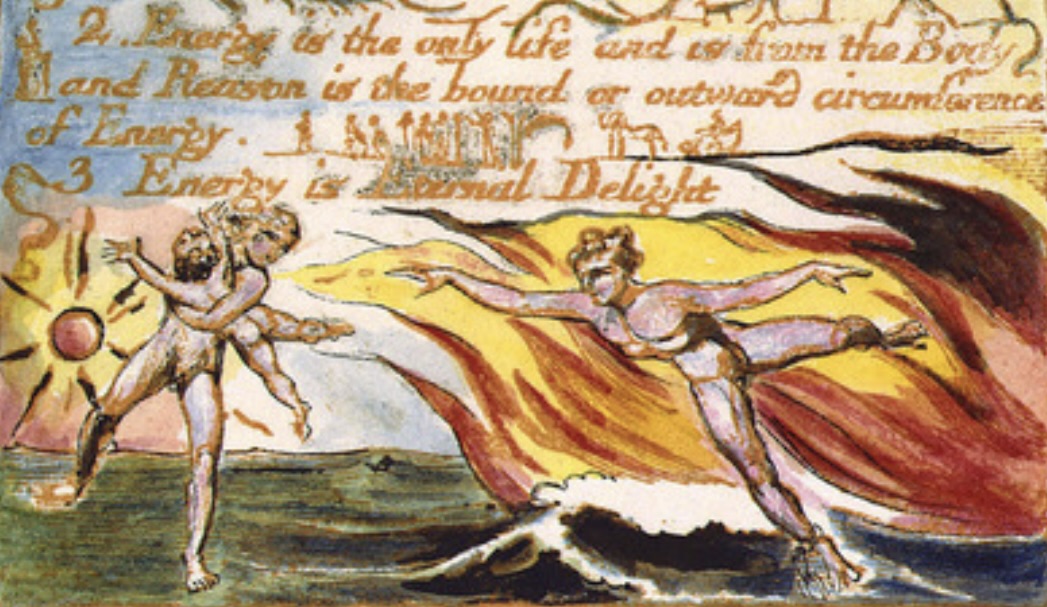 2. Energy is the only life and is from the Body
and Reason is the bound or outward circumference
of Energy.
3 Energy is Eternal Delight